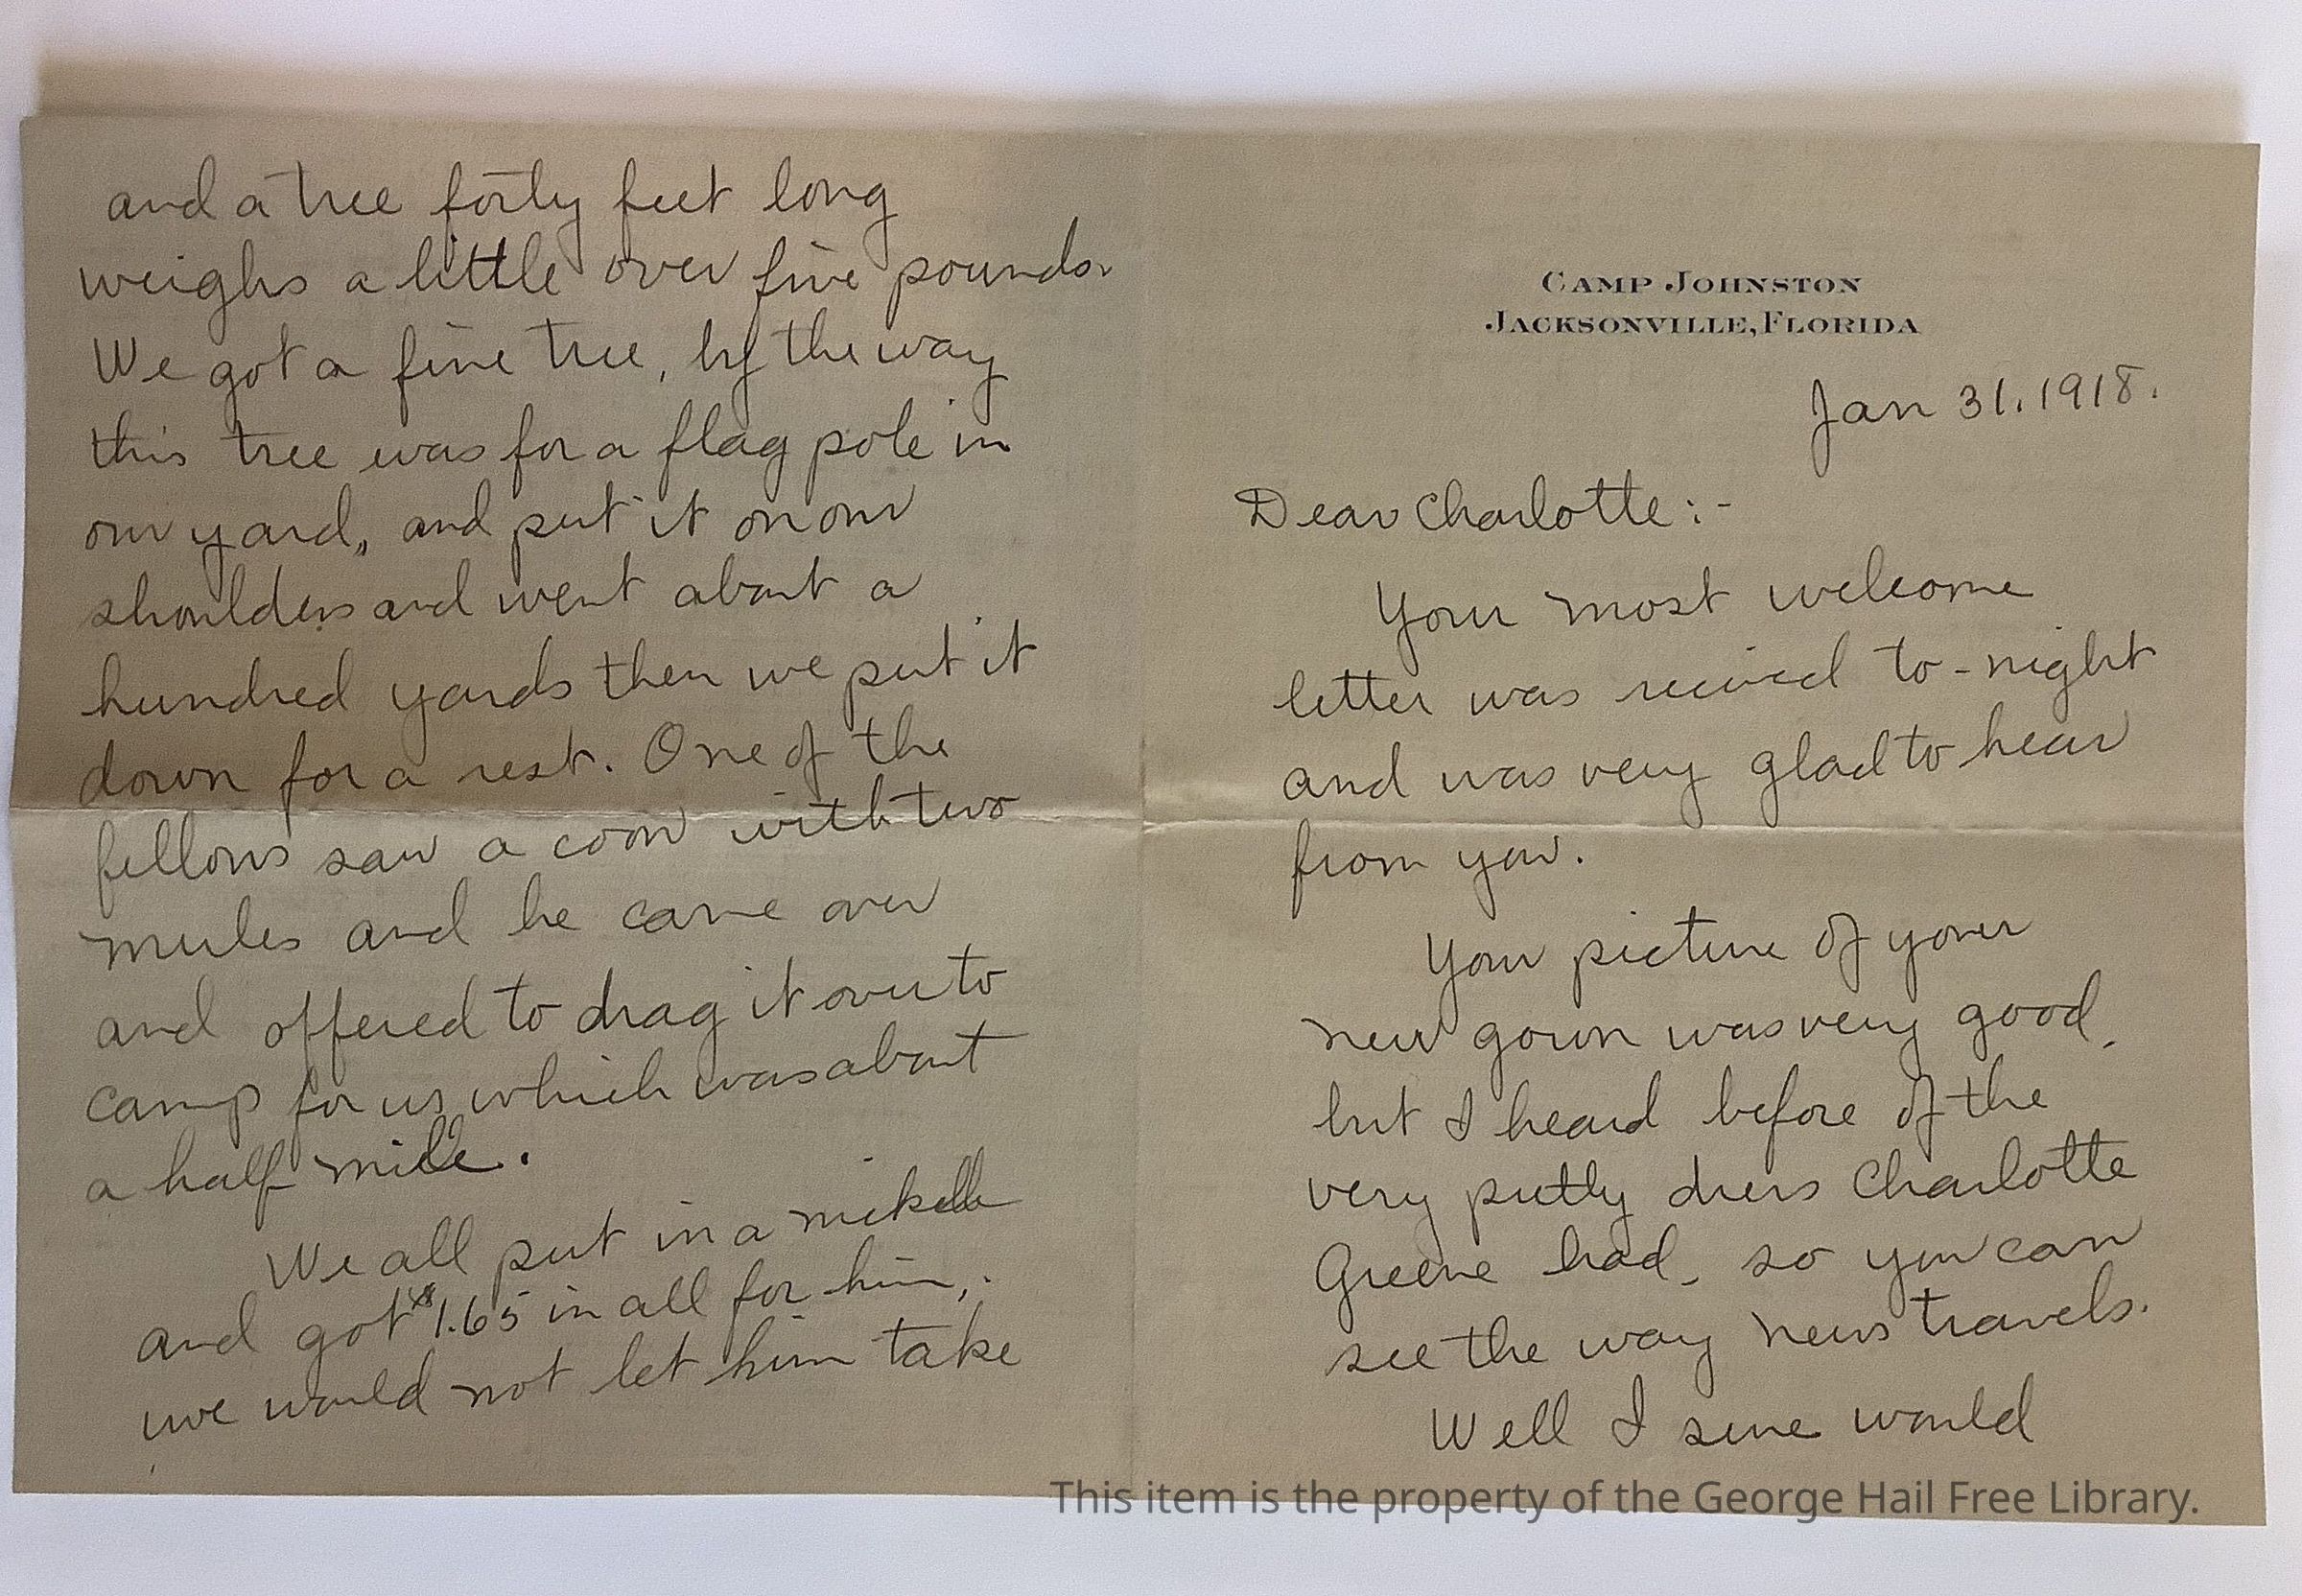 and a tree forty feet long
weighs a little over five pounds.
We got a fine tree, by the way
this tree was for a flag pole in
our yard, and put it on our
shoulders and went about a
hundred yards then we put it
down for a rest. One of the
fellows saw a coon with two
mules and he came over
and offered to drag it over to
camp for us which was about
a half mile.
We all put in a nickelle
and got $1.65 in all for him,
we would not let him take
CAMP JOHNSTON
JACKSONVILLE, FLORIDA
Jan 31. 1918.
Dear Charlotte:-
Your most welcome
letter was recived to-night
and was very glad to hear
from you.
Your picture of your
new gown was very good,
but I heard before of the
very pretty dress Charlotte
Greene had, so you can
see the way news travels.
Well I sure would
This item is the property of the George Hail Free Library.